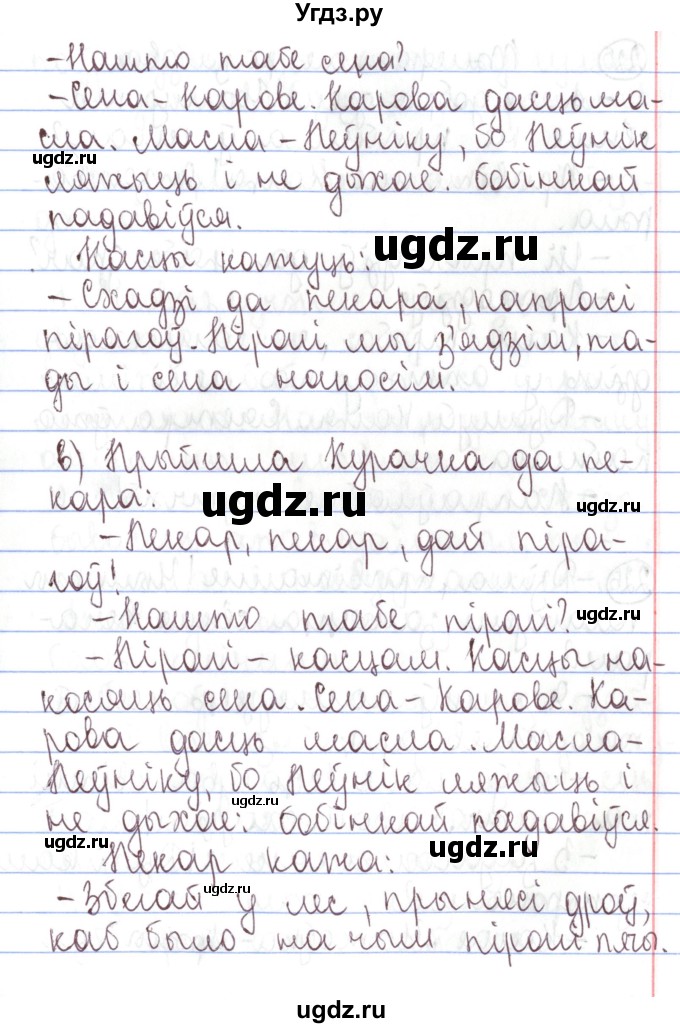 Угдз.ру
-Нашто табе сена?
-Сена-Карове. Карова дасць ма-
сла. Масла-Пеўніку, бо Пеўнік
ляжыць і не дыхае: бобінкай
падавіўся.
Касцы кажуць:
-Схадзі да пекара, папрасі
пірагоў. Пірагі мы з'ядзім, та-
ды і сена накосім.
в) Прыйшла Курачка да пе-
кара:
-Пекар, пекар, дай піра-
гоў!
-Нашто табе пірагі?
-Пірагі-касцам. Касцы на-
косяць сена. Сена-Карове. Ка-
рова дасць масла. Масла-
Пеўніку, бо Пеўнік ляжыць і
не дыхае: бобінкай падавіўся.
Пекар кажа:
-Збегай у лес, прынясі дроў,
каб было на чым пірагі пячы.
ugdz.ru
ugdz.ru
ugdz.ru
ugdz.ru
ugdz.ru
ugdz.ru
ugdz.ru
ugdz.ru
ugdz.ru
ugdz.ru
ugdz.ru
ugdz.ru